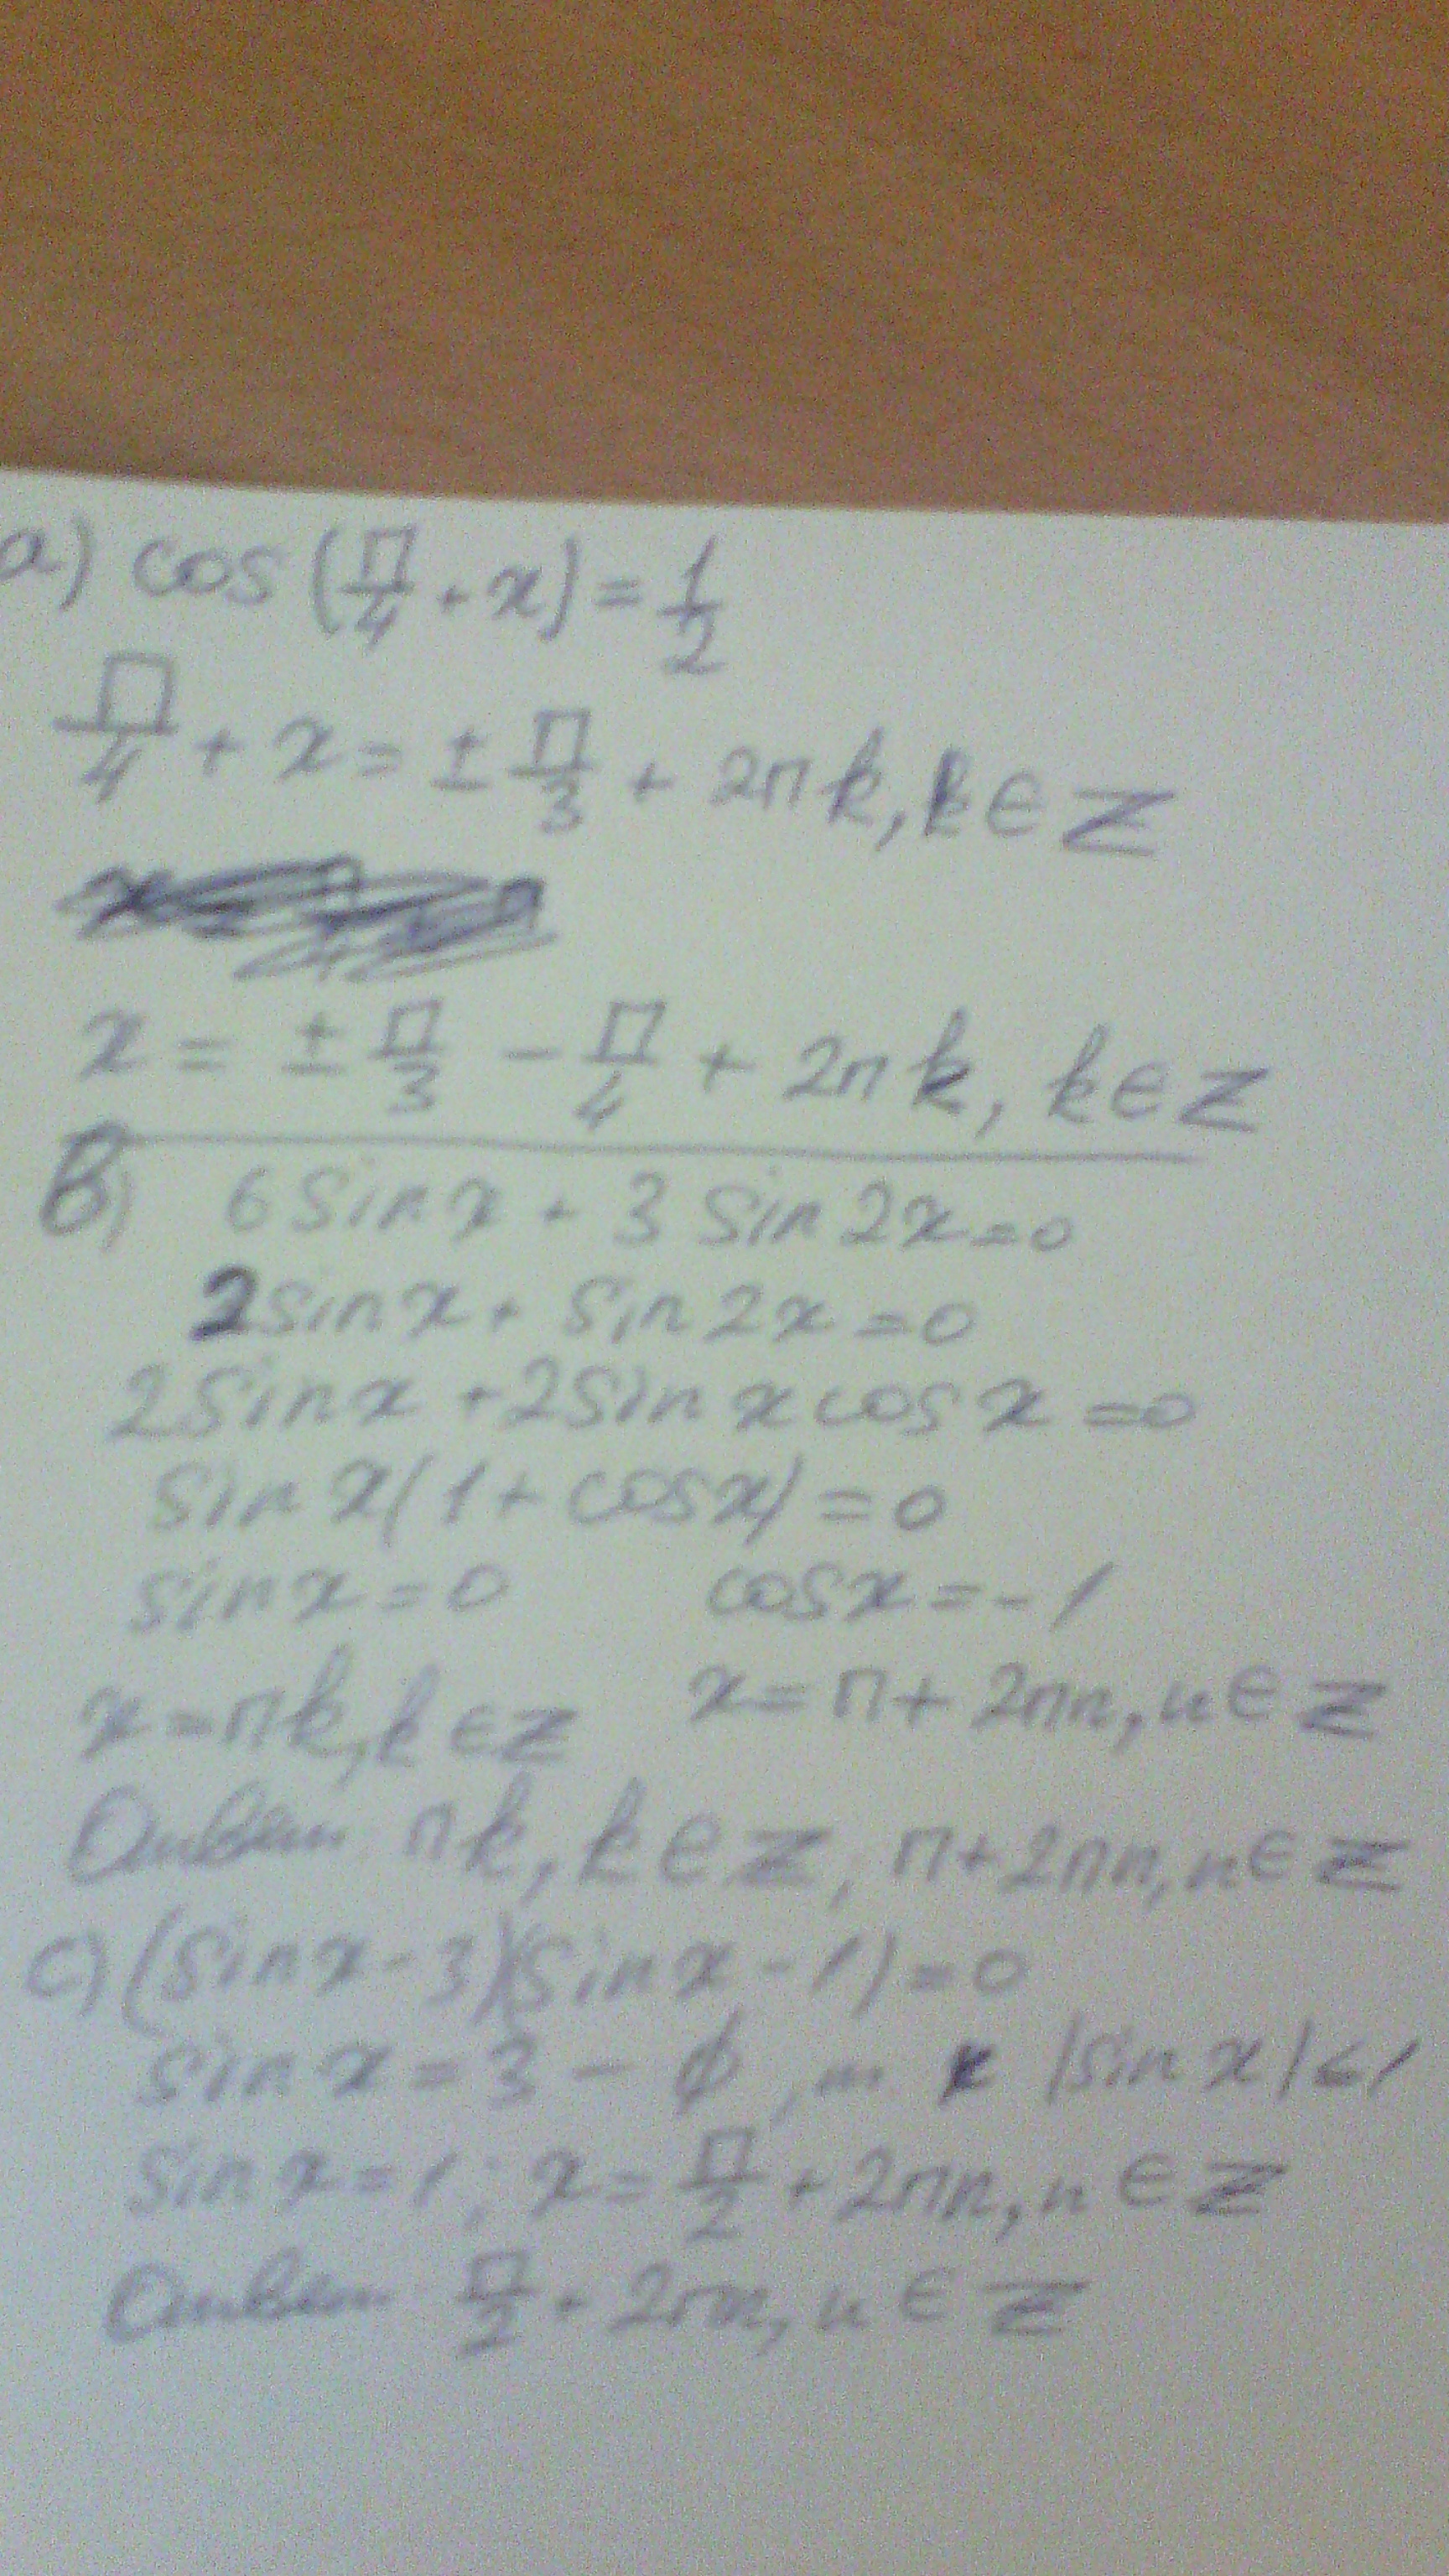 а) cos(π/4 + x) = 1/2
π/4 + x = ± π/3 + 2πk, k ∈ Z
x = ± π/3 - π/4 + 2πk, k ∈ Z
в) 6 sin x + 3 sin 2x = 0
2 sin x + sin 2x = 0
2 sin x + 2 sin x cos x = 0
sin x (1 + cos x) = 0
sin x = 0 cos x = -1
x = πk, k ∈ Z x = π + 2πn, n ∈ Z
Ответ πk, k ∈ Z, π + 2πn, n ∈ Z
с) (sin x - 3)(sin x - 1) = 0
sin x = 3 - ∅, т к |sin x| ≤ 1
sin x = 1; x = π/2 + 2πn, n ∈ Z
Ответ π/2 + 2πn, n ∈ Z